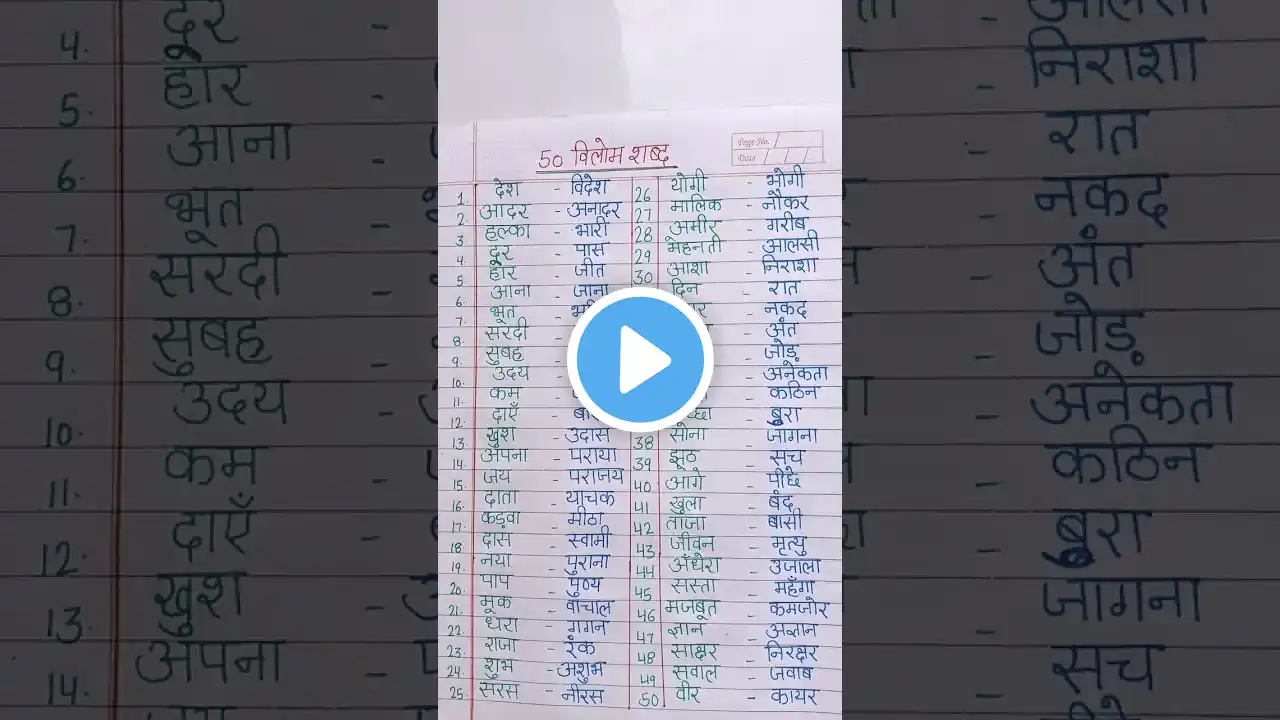 50 विलोम शब्द
Page No.
Date
1. देश - विदेश
2. आदर - अनादर
3. हल्का - भारी
4. दूर - पास
5. हार - जीत
6. आना - जाना
7. भूत -
8. सरदी
9. सुबह
10. उदय
11. कम
12. दाएँ -
13. खुश - उदास
14. अपना - पराया
15. जय - पराजय
16. दाता - याचक
17. कड़वा - मीठा
18. दास - स्वामी
19. नया - पुराना
20. पाप - पुण्य
21. मूक - वाचाल
22. धरा - गगन
23. राजा - रंक
24. शुभ - अशुभ
25. सरस - नीरस
26 योगी - भोगी
27 मालिक - नौकर
28 अमीर - गरीब
29 मेहनती - आलसी
30 आशा - निराशा
दिन - रात
- नकद
- अंत
- जोड़
- अनेकता
- कठिन
- बुरा
38 सोना - जागना
39 झूठ - सच
40 आगे - पीछे
41 खुला - बंद
42 ताजा - बासी
43 जीवन - मृत्यु
44 अँधेरा - उजाला
45 सस्ता - महँगा
46 मजबूत - कमजोर
47 ज्ञान - अज्ञान
48 साक्षर - निरक्षर
49 सवाल - जवाब
50 वीर - कायर
4. दूर -
5. हार -
6. आना
7. भूत
8. सरदी
9. सुबह
10. उदय -
11. कम
12. दाएँ
13. खुश -
14. अपना -
- निराशा
- रात
- नकद
अंत
- जोड़
- अनेकता
- कठिन
- बुरा
- जागना
- सच